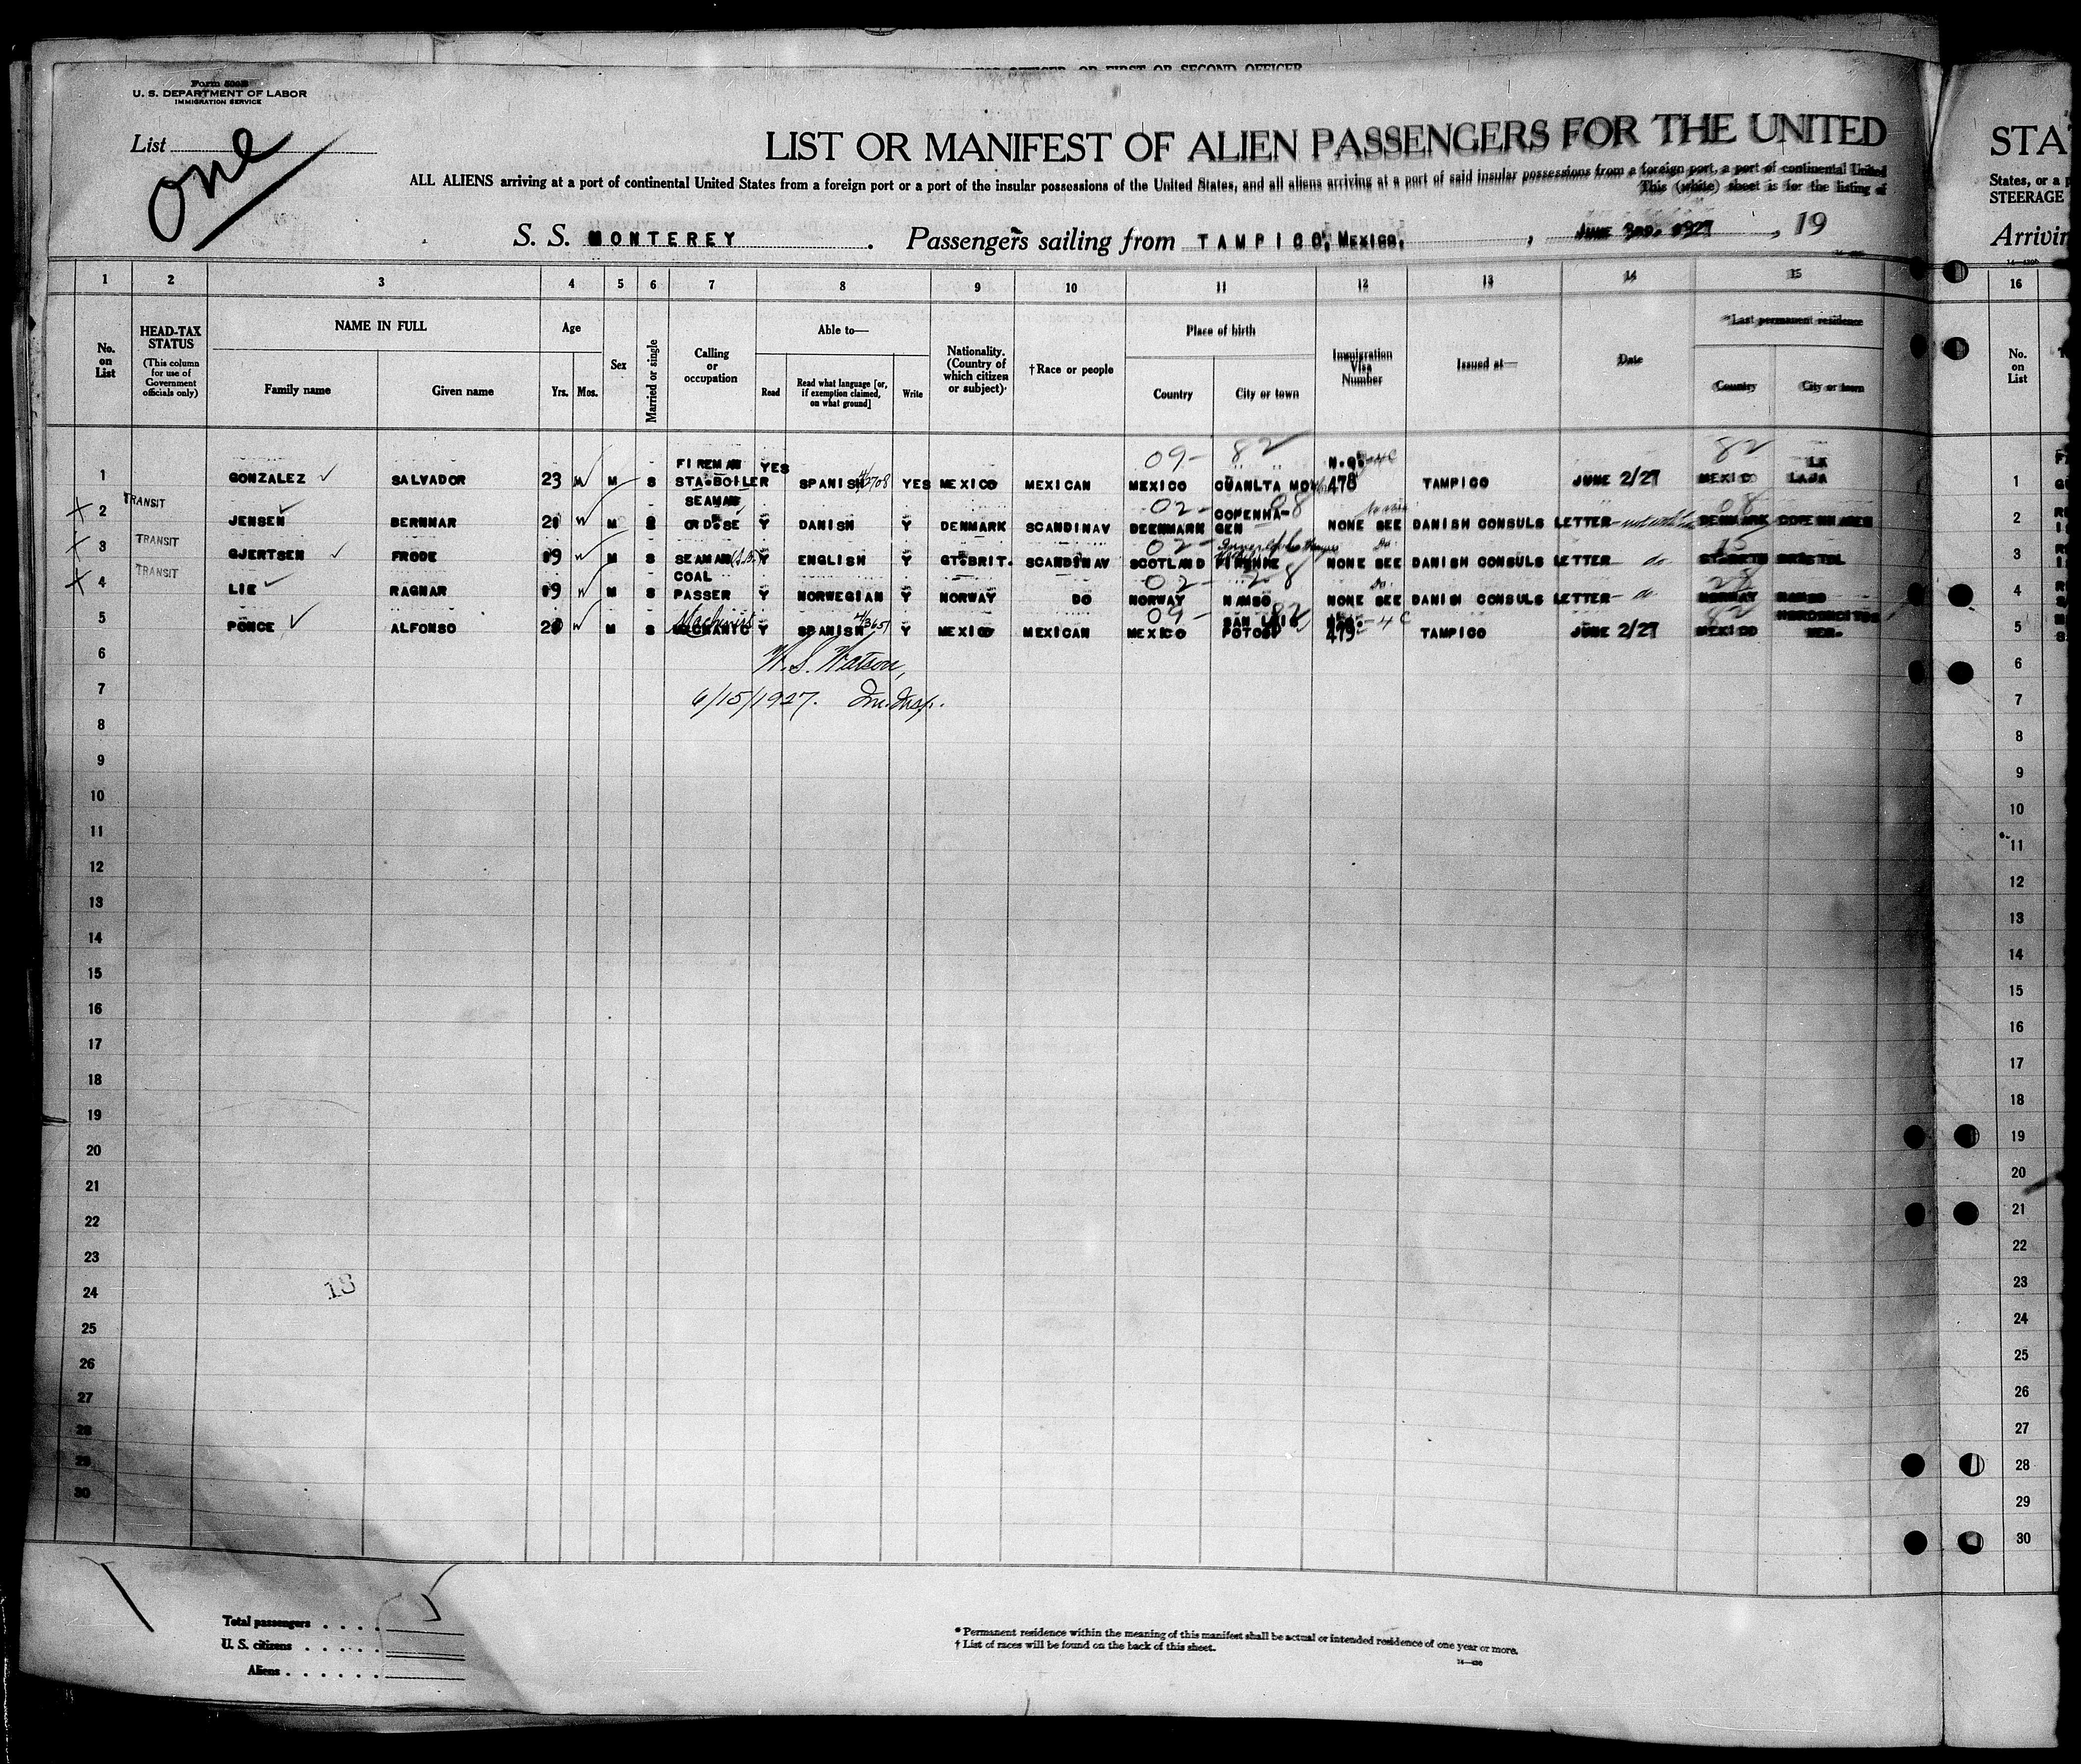 Form 500B
U. S. DEPARTMENT OF LABOR
IMMIGRATION SERVICE
List one
LIST OR MANIFEST OF ALIEN PASSENGERS FOR THE UNITED
STA
ALL ALIENS arriving at a port of continental United States from a foreign port or a port of the insular possessions of the United States, and all aliens arriving at a port of said insular possessions from a foreign port, a port of continental United
States, or a p
This (white) sheet is for the listing of
STEERAGE
S. S. MONTEREY. Passengers sailing from TAMPICO, MEXICO, JUNE 3RD. 1927, 19
Arrivin
1 2 3 4 5 6 7 8 9 10 11 12 13 14 15 16
No. on List
HEAD-TAX STATUS
(This column for use of Government officials only)
NAME IN FULL
Family name Given name
Age
Yrs. Mos.
Sex
Married or single
Calling or occupation
Able to—
Read
Read what language [or, if exemption claimed, on what ground]
Write
Nationality. (Country of which citizen or subject)
†Race or people
Place of birth
Country City or town
Immigration Visa Number
Issued at—
Date
*Last permanent residence
Country City or town
No. on List
09- 82 82
FIREMAN YES LA
1 GONZALEZ SALVADOR 23 M S STA.BOILER SPANISH YES MEXICO MEXICAN MEXICO 478 TAMPICO JUNE 2/27 MEXICO LAJA 1
TRANSIT SEAMAN 02- COPENHA- 08
2 JENSEN BERNHAR M S Y DANISH Y DENMARK SCANDINAV DEENMARK GEN NONE SEE DANISH CONSULS LETTER DENMARK COPENHAGEN 2
TRANSIT 02- Do
3 GJERTSEN FRODE 19 M S SEAMAN Y ENGLISH Y GT.BRIT. SCANDINAV SCOTLAND NONE SEE DANISH CONSULS LETTER- do BRISTOL 3
TRANSIT COAL 02- 28 Do
4 LIE RAGNAR 19 M S PASSER Y NORWEGIAN Y NORWAY DO NORWAY NAMSO NONE SEE DANISH CONSULS LETTER- do NORWAY NAMSO 4
Machinist 09- SAN LUIS 82
5 PONCE ALFONSO M S Y SPANISH Y MEXICO MEXICAN MEXICO POTOSI 479 TAMPICO JUNE 2/27 MEXICO MEX. 5
6 W. S. Watson, 6
7 6/15/1927. Im. Insp. 7
8 8
9 9
10 10
11 11
12 12
13 13
14 14
15 15
16 16
17 17
18 18
19 19
20 20
21 21
22 22
23 23
24 18 24
25 25
26 26
27 27
28 28
29 29
30 30
Total passengers
U. S. citizens
Aliens
* Permanent residence within the meaning of this manifest shall be actual or intended residence of one year or more.
† List of races will be found on the back of this sheet.